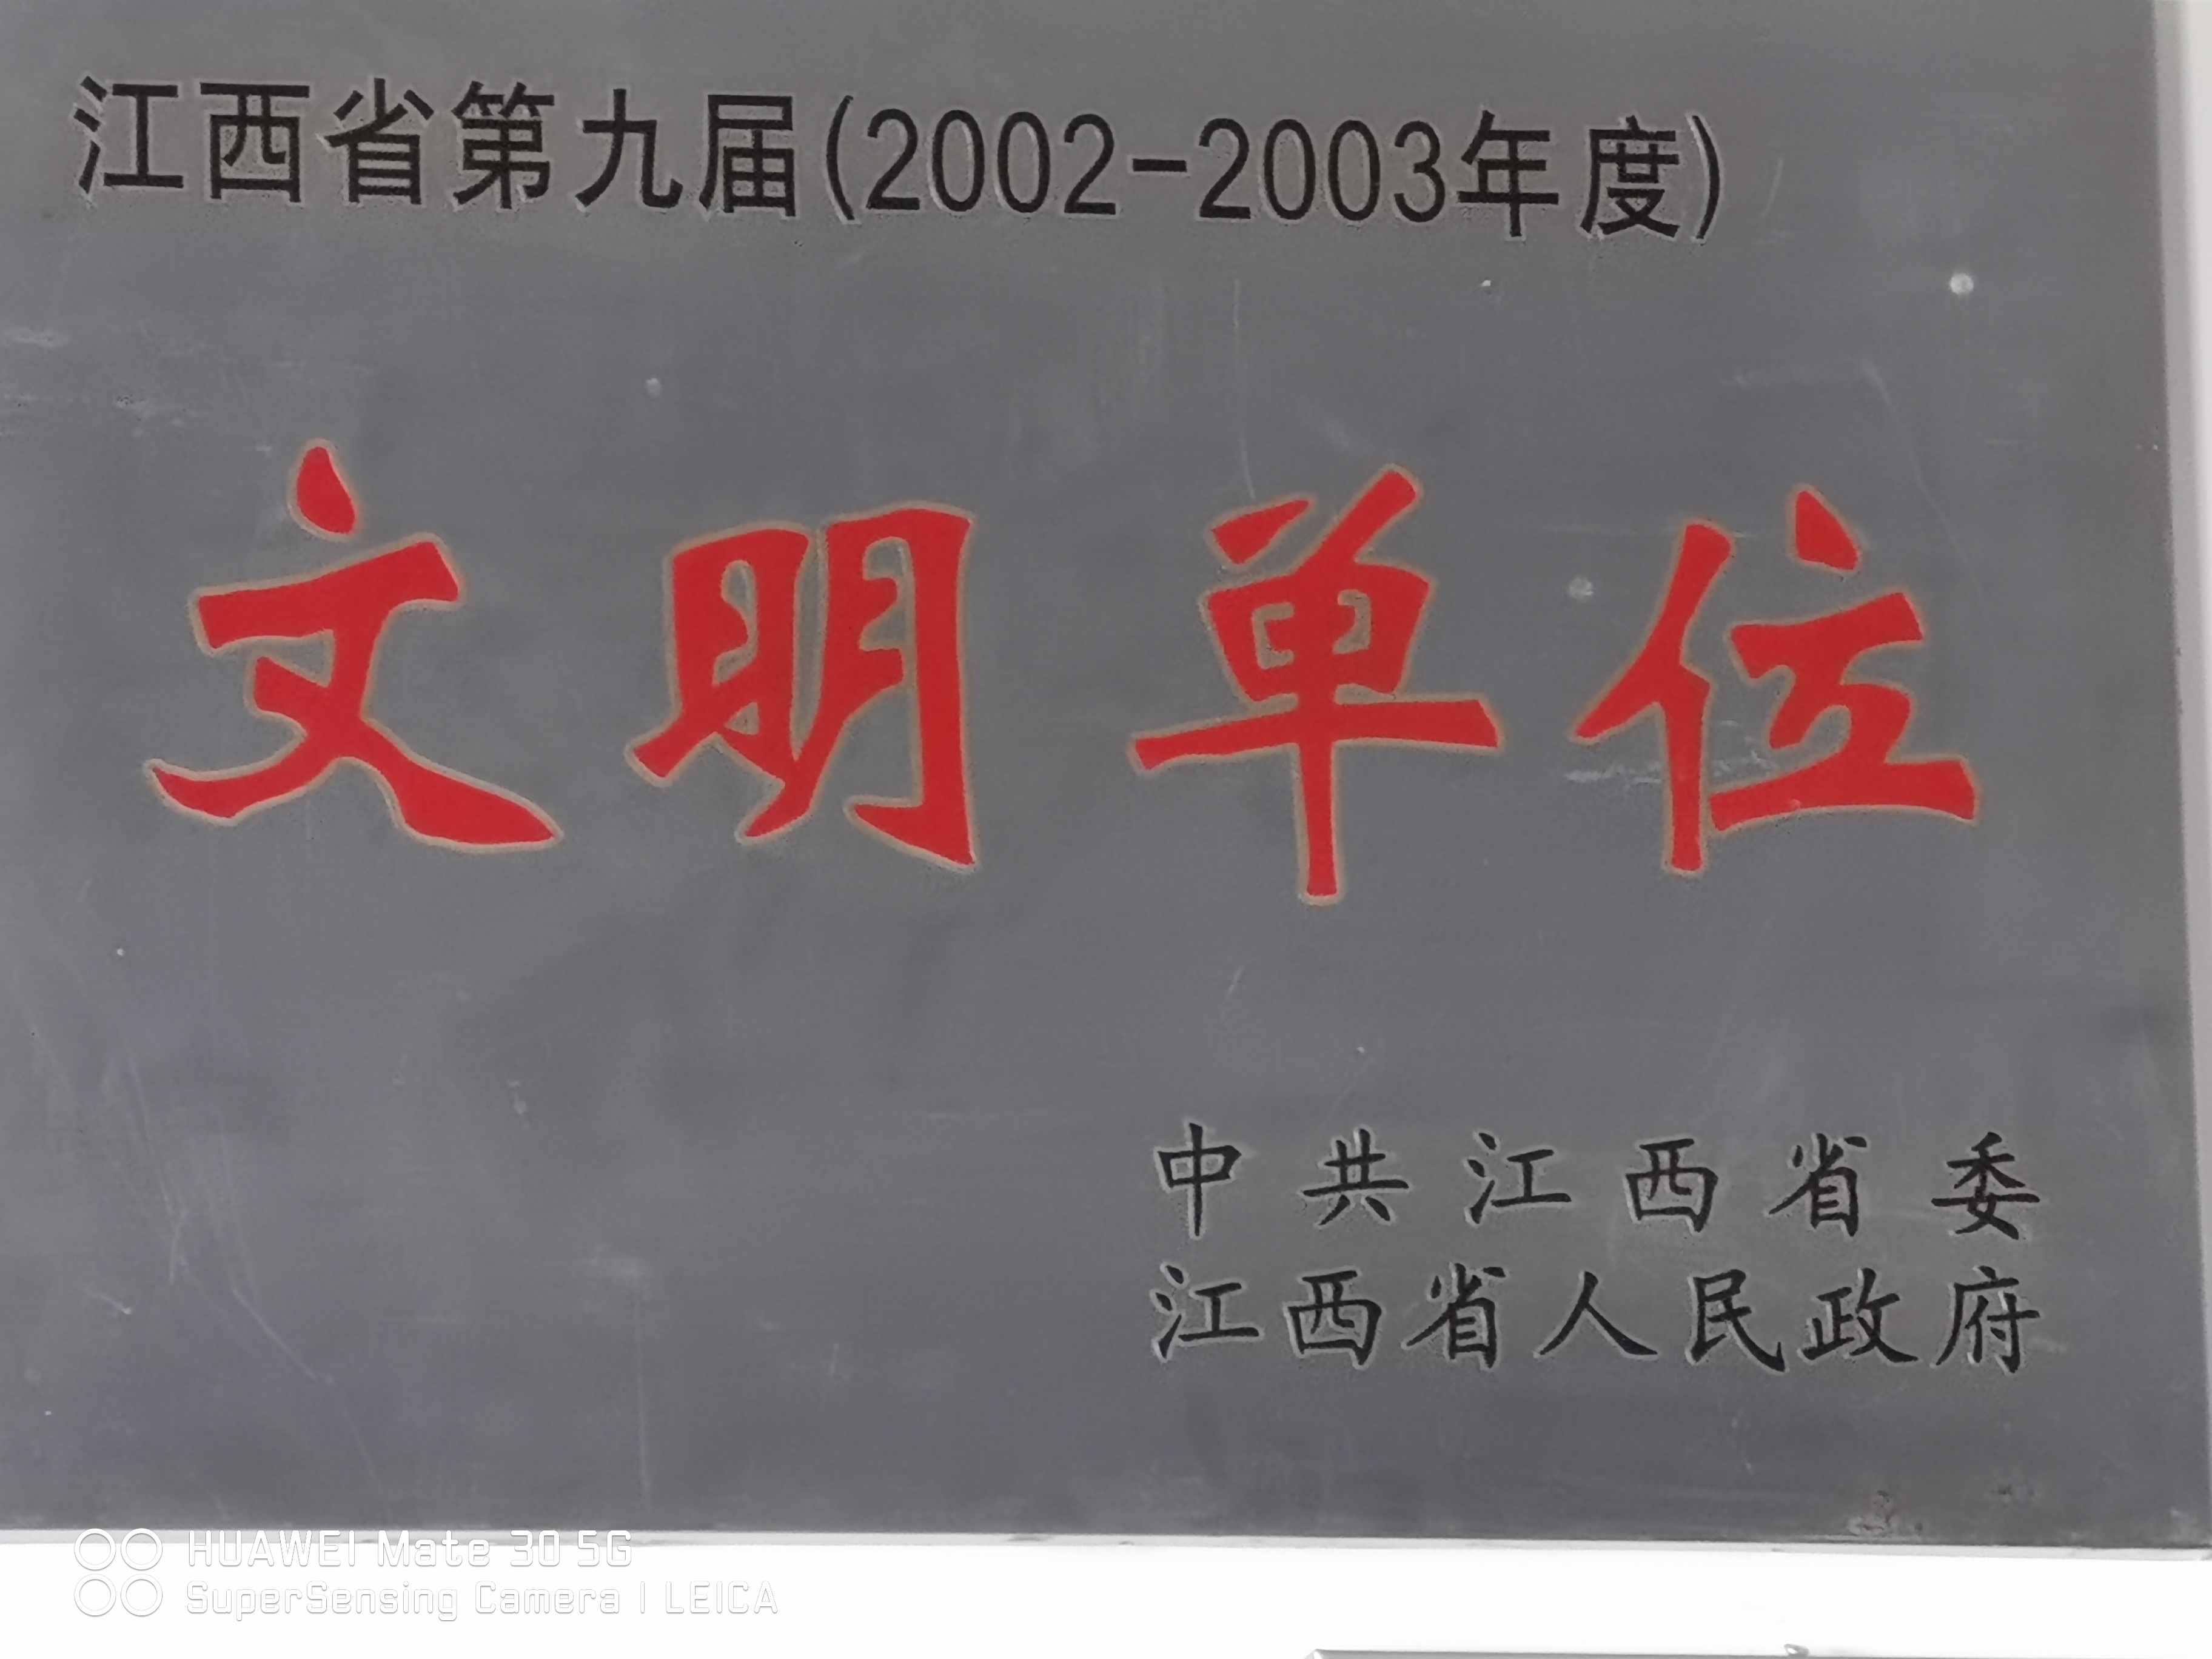 江西省第九届(2002-2003年度)
文明单位
中共江西省委
江西省人民政府
HUAWEI Mate 30 5G
SuperSensing Camera | LEICA